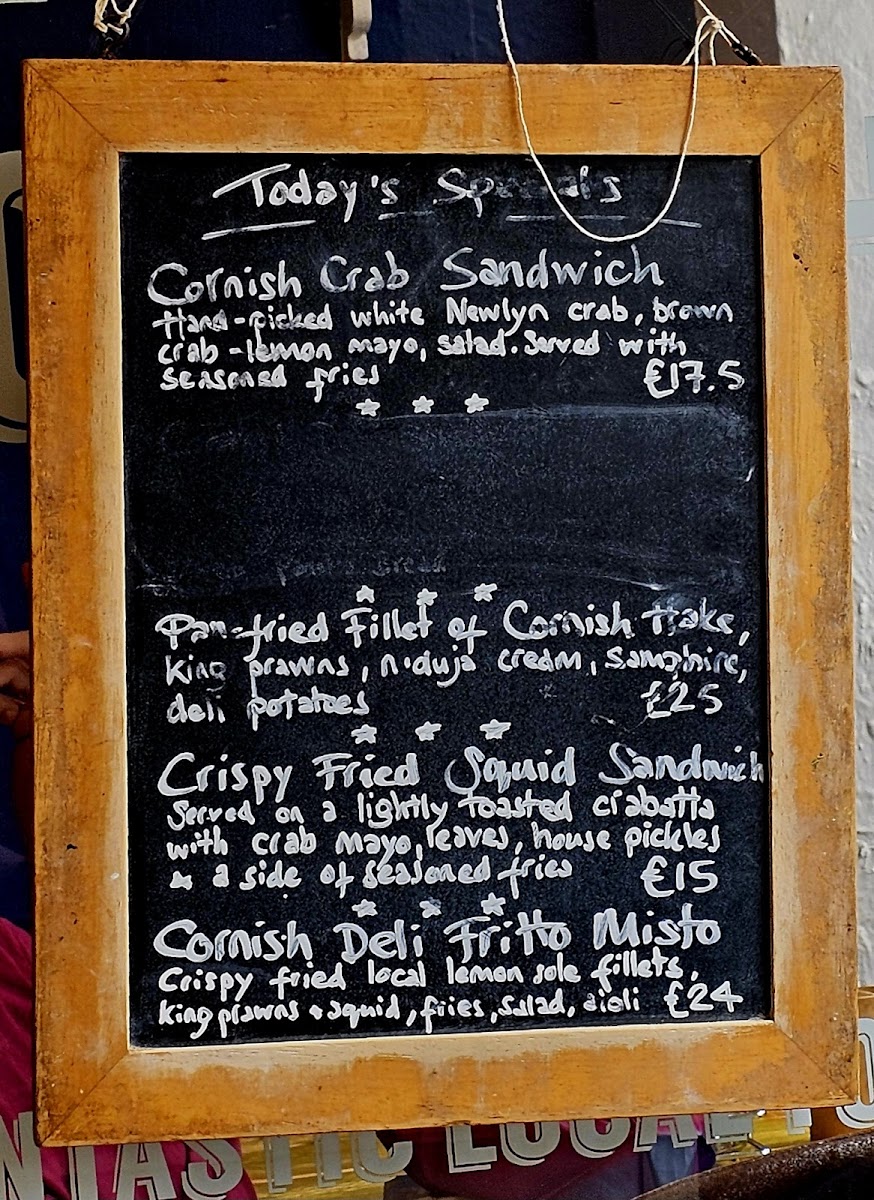 Today's Specials
Cornish Crab Sandwich
Hand-picked white Newlyn crab, brown
crab-lemon mayo, salad. Served with
seasoned fries £17.5
Pan-fried Fillet of Cornish Hake,
king prawns, n'duja cream, samphire,
deli potatoes £25
Crispy Fried Squid Sandwich
Served on a lightly toasted ciabatta
with crab mayo, leaves, house pickles
& a side of seasoned fries £15
Cornish Deli Fritto Misto
Crispy fried local lemon sole fillets,
king prawns & squid, fries, salad, aioli £24
NTASTIC LOCAL